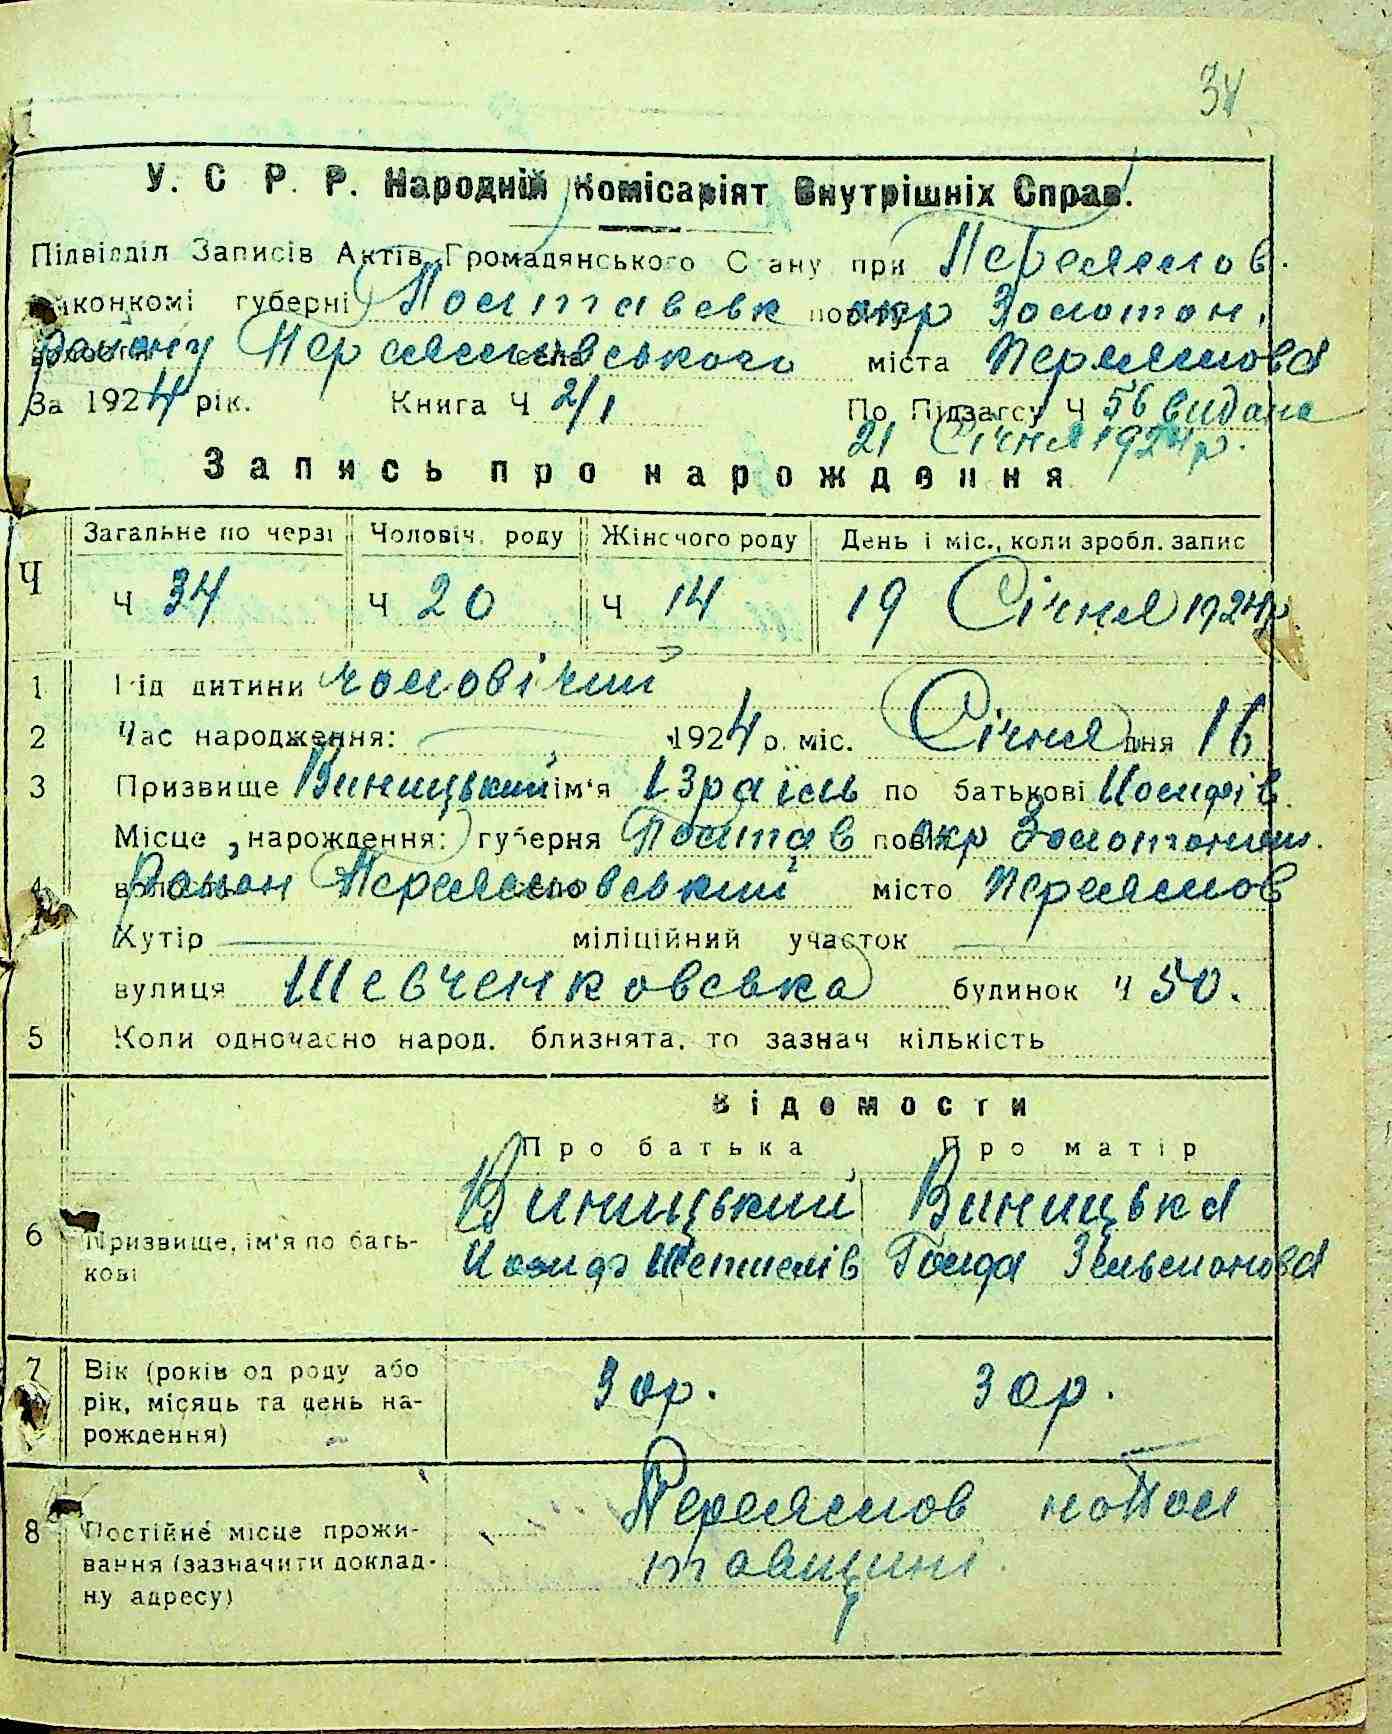 34
У. С Р. Р. Народній Комісаріят Внутрішніх Справ.
Підвідділ Записів Актів Громадянського Стану при Переяслов.
Виконкомі губерні Полтавськ окр Золотон.
Району Переяславського міста Переяслова
За 1924 рік. Книга Ч 2/1 По Підзагсу Ч 56 видана
21 Січня 1924 р.
Запись про народження
Ч Загальне по черзі Чоловіч. роду Жіночого роду День і міс., коли зробл. запис
Ч 34 Ч 20 Ч 14 19 Січня 1924р
1 Рід дитини чоловічий
2 Час народження: 1924 р. міс. Січня дня 16
3 Призвище Виницький ім'я Ізраїль по батькові Иосифів
Місце народження: губерня Полтав окр Золотониш.
4 Район Переясловський місто Переяслов
Хутір міліційний участок
вулиця Шевченковська будинок Ч 50.
5 Коли одночасно народ. близнята, то зазнач кількість
Відомости
Про батька Про матір
Виницький Виницька
6 Призвище, ім'я по бать-
кові
Иосиф Гольда Зельманова
7 Вік (років од роду або
рік, місяць та день на-
рождення)
30р. 30р.
8 Постійне місце прожи-
вання (зазначити доклад-
ну адресу)
Переяслов на Пол
тавщині